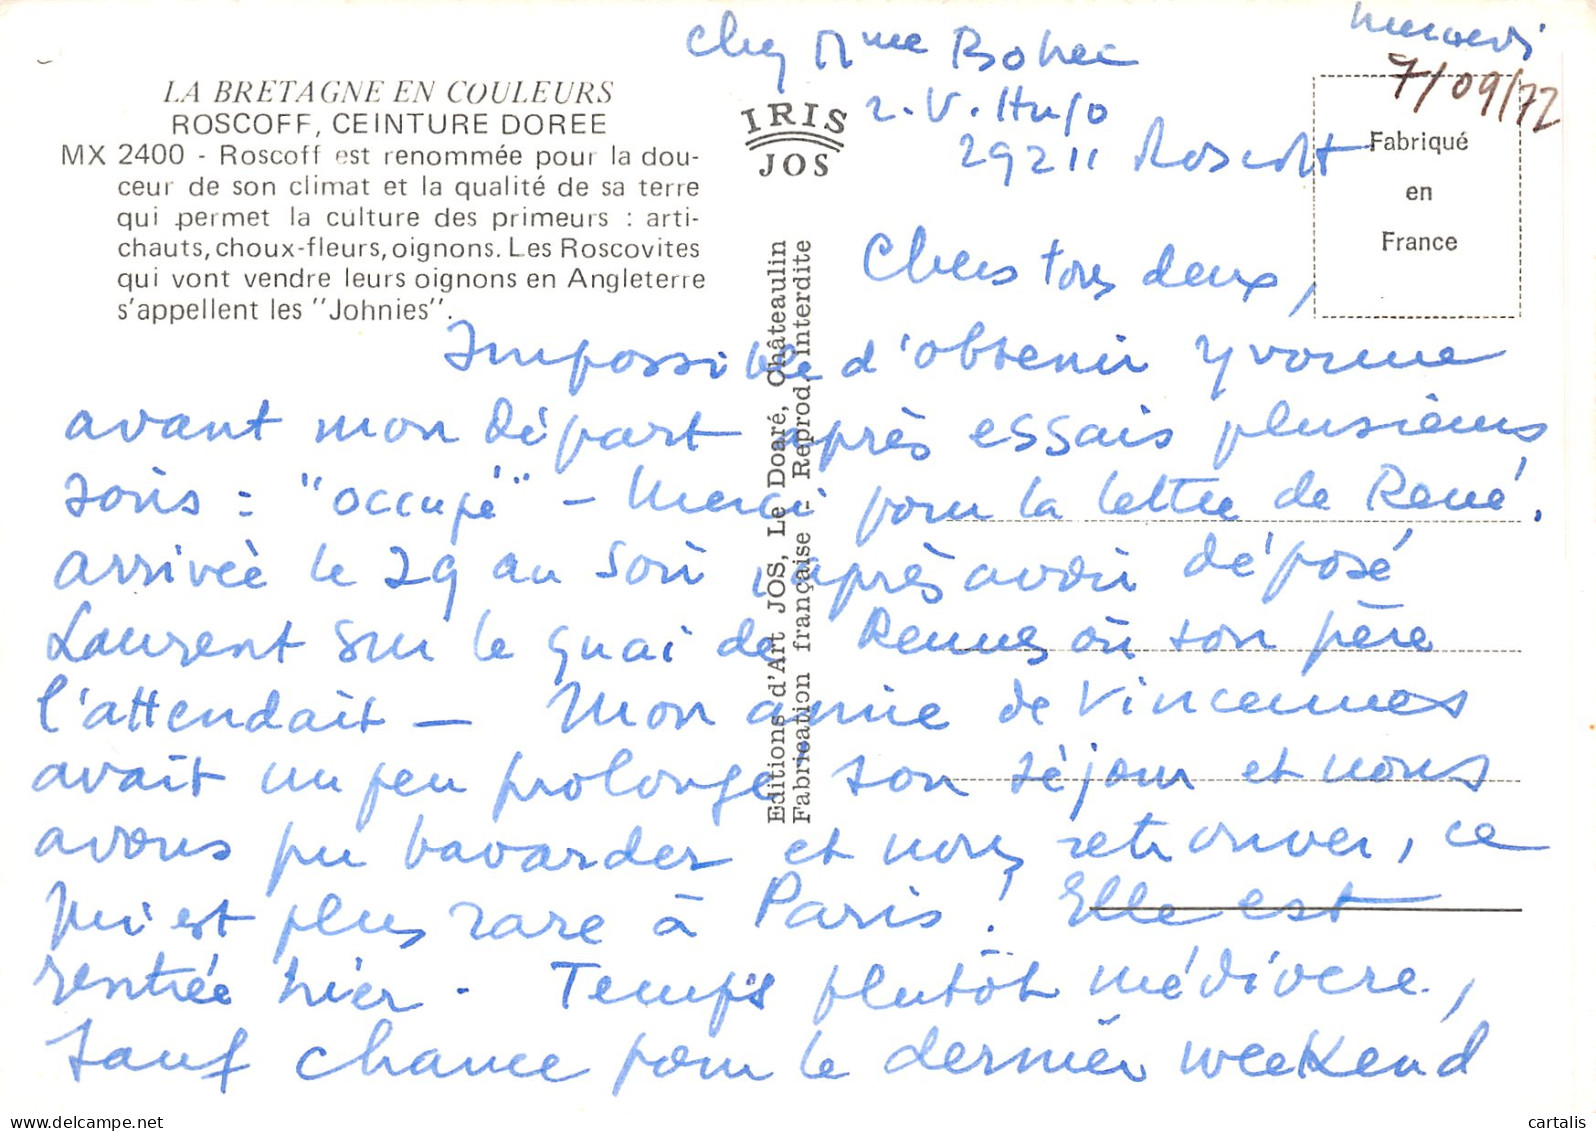 LA BRETAGNE EN COULEURS
ROSCOFF, CEINTURE DOREE
MX 2400 - Roscoff est renommée pour la dou-
ceur de son climat et la qualité de sa terre
qui permet la culture des primeurs : arti-
chauts, choux-fleurs, oignons. Les Roscovites
qui vont vendre leurs oignons en Angleterre
s'appellent les "Johnies".
IRIS
JOS
Editions d'Art JOS, Le Doaré, Châteaulin
Fabrication française - Reprod. interdite
Fabriqué
en
France
mercredi
7/09/72
Chez Mme Bohec
2. V. Hugo
29211 Roscoff
Chers tous deux,
Impossible d'obtenir Yvonne
avant mon départ après essais plusieurs
soirs : "occupé" - Merci pour la lettre de René.
arrivée le 29 au soir, après avoir déposé
Laurent sur le quai de Rennes où son père
l'attendait - Mon amie de Vincennes
avait un peu prolongé son séjour et nous
avons pu bavarder et nous retrouver, ce
qui est plus rare à Paris ! Elle est
rentrée hier. Temps plutôt médiocre,
sauf chance pour le dernier weekend
cartalis